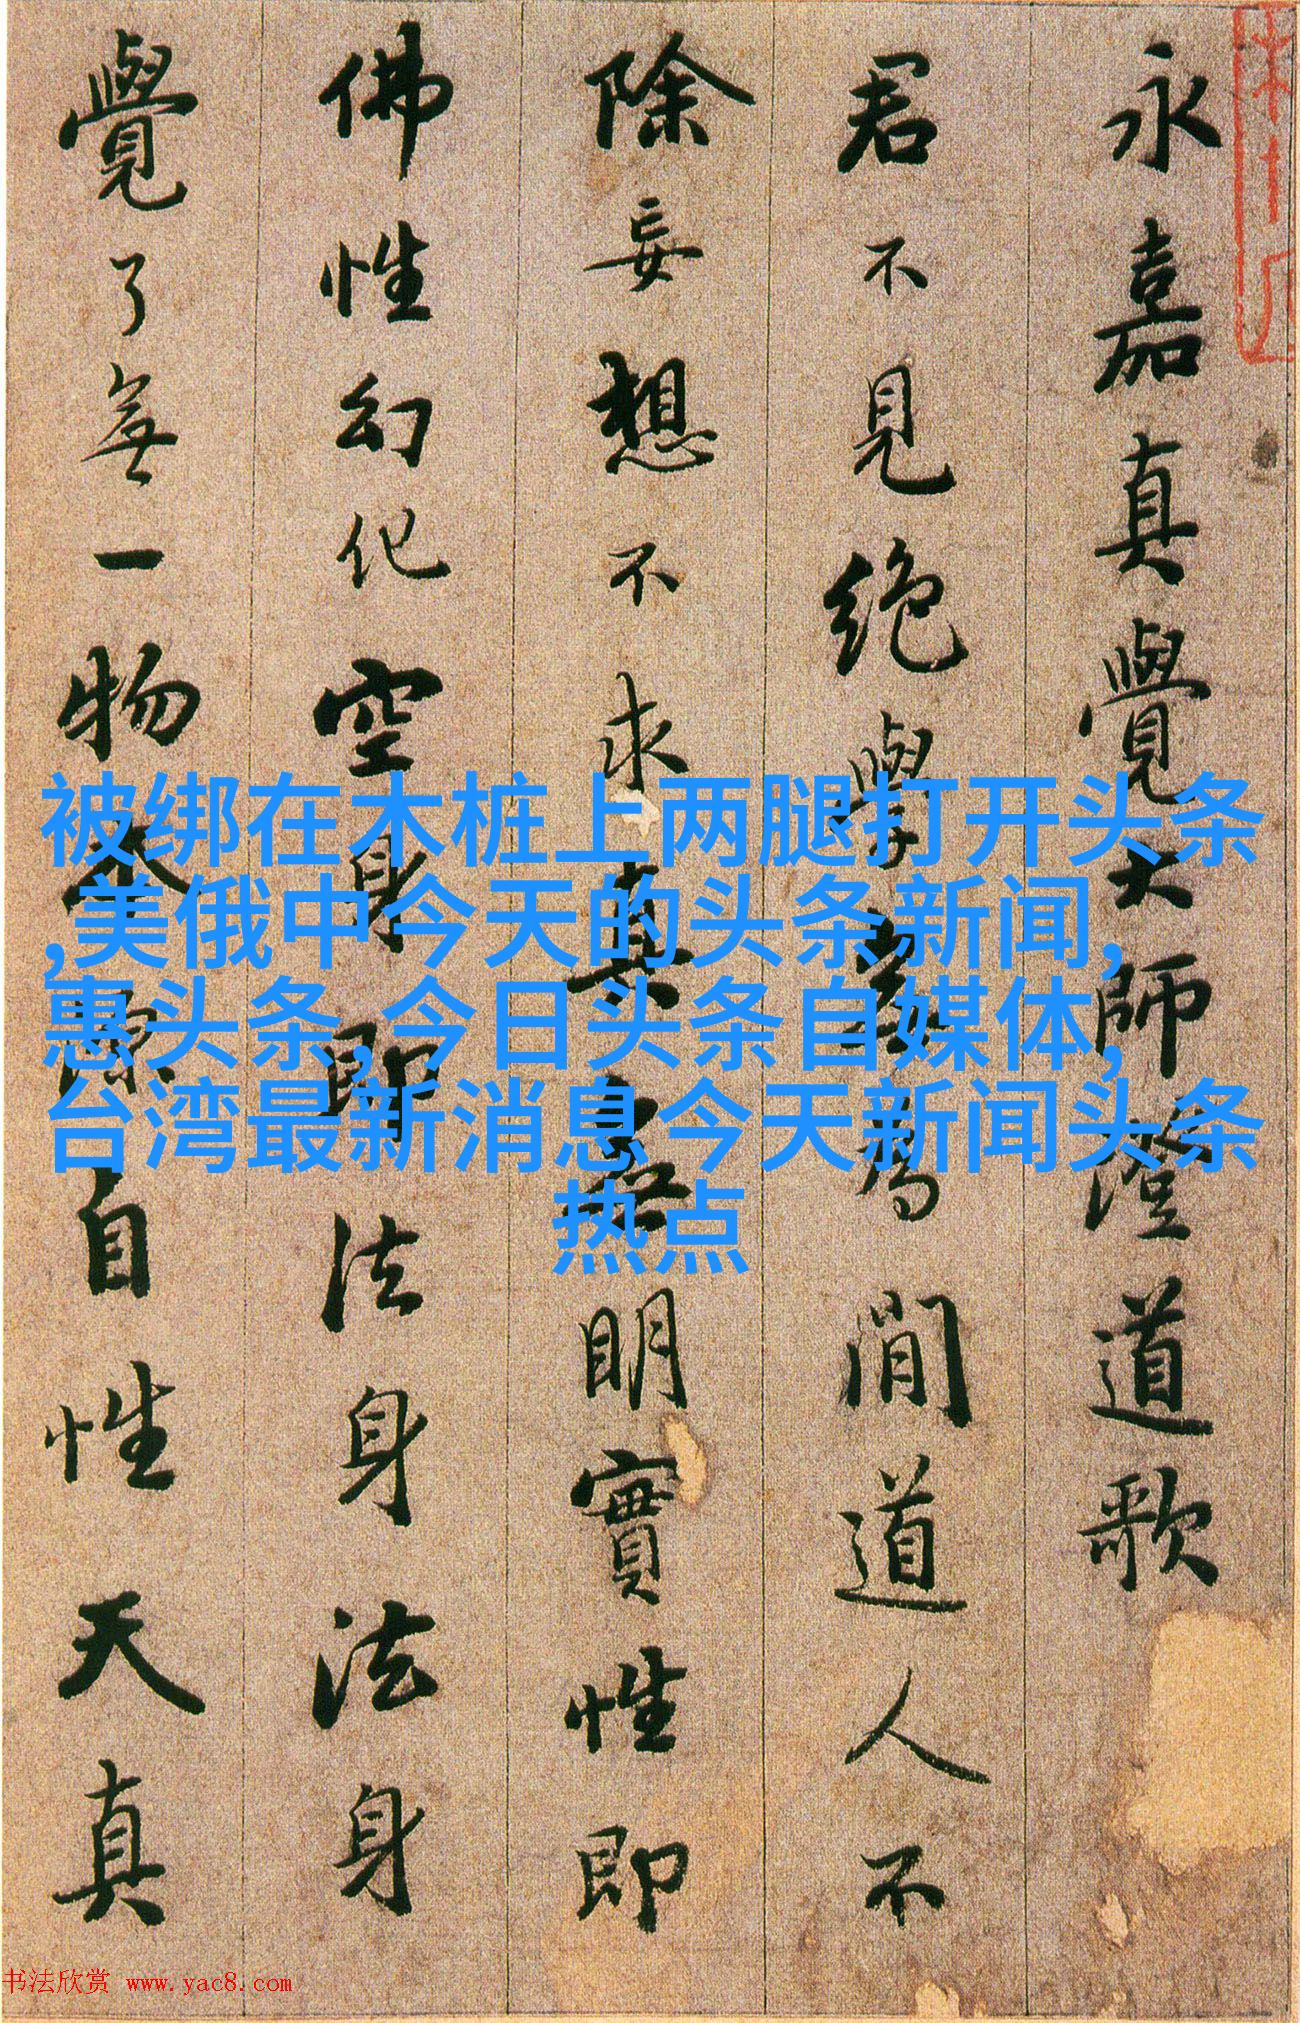 永嘉真覺大師澄道歌
君不見絶學無為閒道人不
除妄想不求真無明實性即
佛性幻化空身即法身法身
覺了無一物本源自性天真
被绑在木桩上两腿打开头条
,美俄中今天的头条新闻,
惠头条,今日头条自媒体,
台湾最新消息今天新闻头条
热点
书法欣赏 www.yac8.com